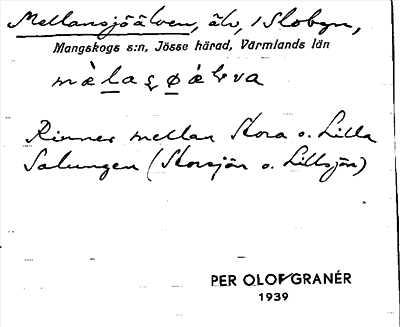 Mellansjöälven, älv, i Slobyn,
Mangskogs s:n, Jösse härad, Värmlands län
Rinner mellan Stora o. Lilla
Salungen (Storsjön o. Lillsjön)
PER OLOF GRANÉR
1939